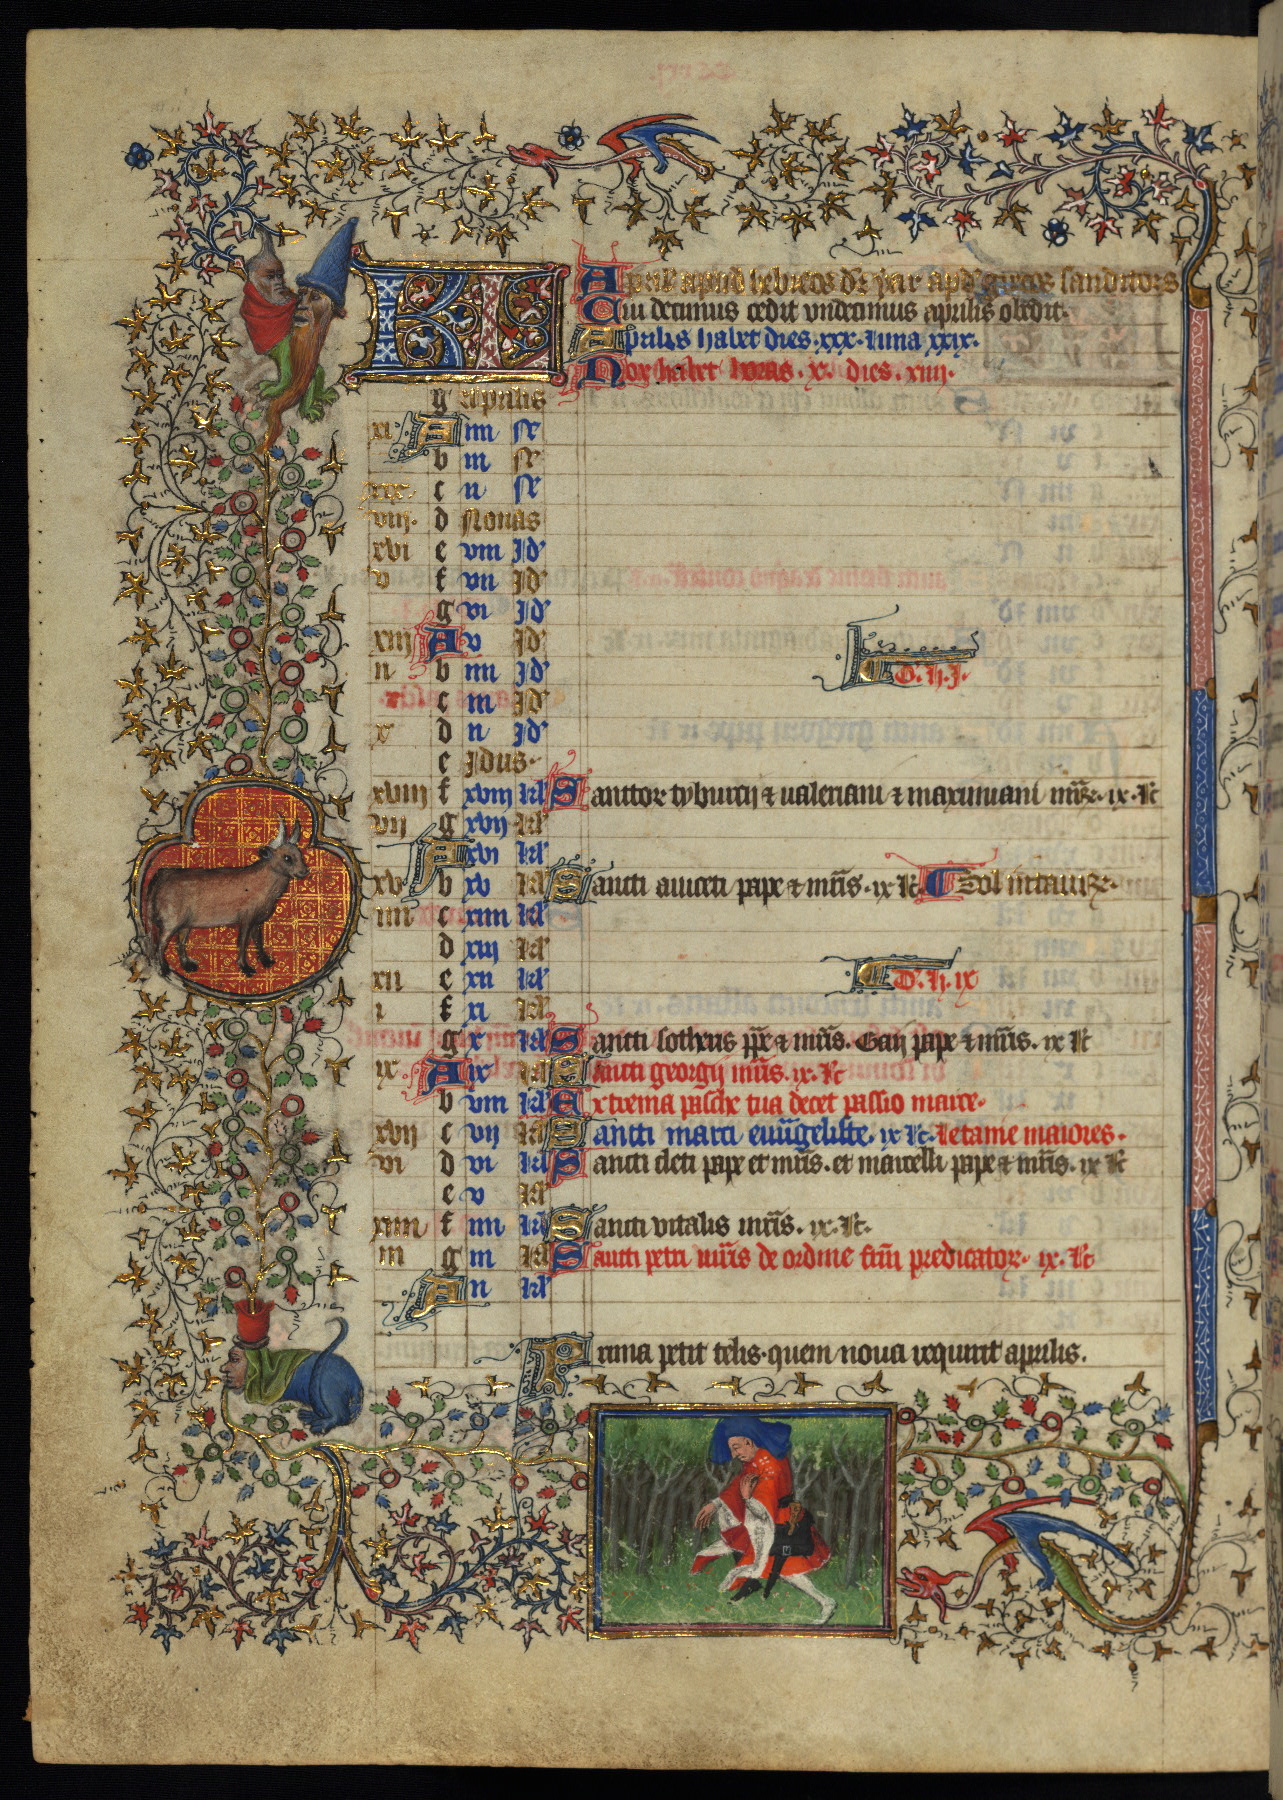 KL
Aprilis apud hebreos dr̄ jar apd̄ grecos
Cui decimus cedit undecimus aprilis
Aprilis habet dies .xxx. luna xxix.
Nox habet horas .x. dies .xiiii.
g Aprilis
xi A iiii
b iii
xix. c ii
viii. d Nonas
xvi e viii Id'
v f vii Id'
g vi Id'
xiii A v Id'
ii b iiii Id' D. ii. j.
c iii Id'
x d ii Id'
e Idus.
xviii f xviii kl' Sanctor tyburcii & valeriani & maximiani mr̄. ix. lc
vii g xvii kl'
A xvi kl'
xv. b xv kl' Sancti aniceti pape & mr̄is. ix lc Sol in tauro.
iiii c xiiii kl'
d xiii kl'
xii e xii kl' D. ii. ix
i f xi kl'
g x kl' Sancti sothers pp̄e & mr̄is. Gaii pape & mr̄is. ix lc
ix A ix kl' Sancti georgii mr̄is. ix. lc
b viii kl' Extrema pasche tua decet passio marce.
xvii c vii kl' Sancti marci evūgeliste. ix lc. letanie maiores.
vi d vi kl' Sancti cleti pape et mr̄is. et marcelli pape & mr̄is. ix lc
e v kl'
xiiii f iiii kl' Sancti vitalis mr̄is. ix. lc.
iii g iii kl' Sancti petri mr̄is de ordine frm̄ predicator. ix. lc
A ii kl'
Prima petit telis. quem nona requirit aprilis.